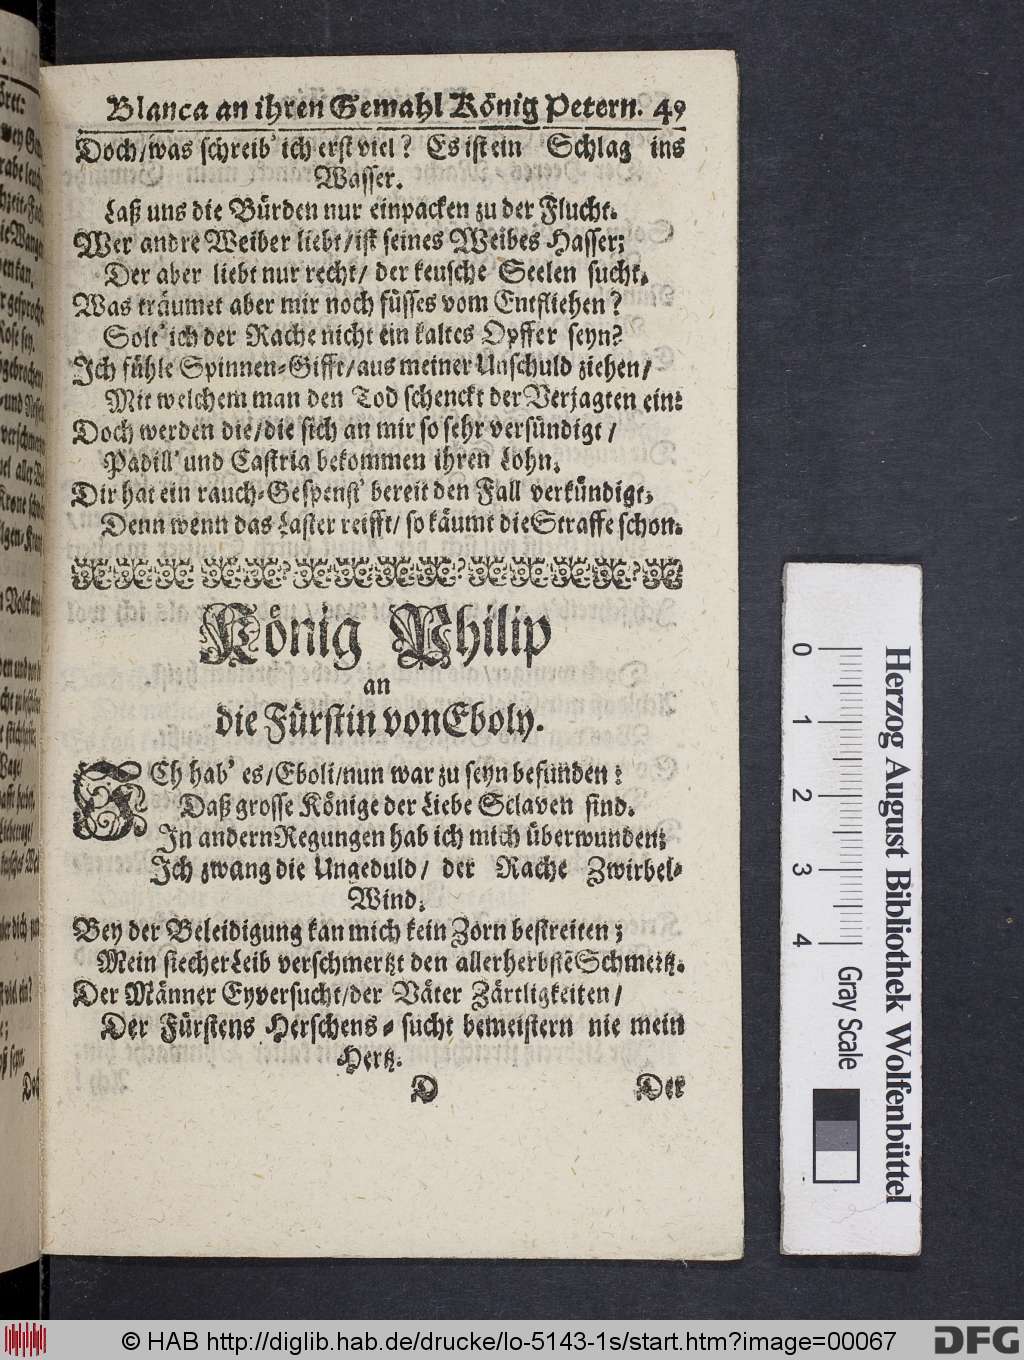 Blanca an ihren Gemahl König Petern. 49
Doch/was schreib' ich erst viel? Es ist ein Schlag ins
Wasser.
Laß uns die Bürden nur einpacken zu der Flucht.
Wer andre Weiber liebt/ist seines Weibes Hasser;
Der aber liebt nur recht/ der keusche Seelen sucht.
Was träumet aber mir noch süsses vom Entfliehen?
Solt' ich der Rache nicht ein kaltes Opffer seyn?
Ich fühle Spinnen-Gifft/aus meiner Unschuld ziehen/
Mit welchem man den Tod schenckt der Verjagten ein:
Doch werden die/die sich an mir so sehr versündigt/
Padill' und Castria bekommen ihren Lohn.
Dir hat ein rauch-Gespenst' bereit den Fall verkündigt,
Denn wenn das Laster reifft/ so käumt die Straffe schon.
König Philip
an
die Fürstin von Eboly.
ICh hab' es/Eboli/nun war zu seyn befunden:
Daß grosse Könige der Liebe Sclaven sind.
In andern Regungen hab ich mich überwunden;
Ich zwang die Ungeduld/ der Rache Zwirbel-
Wind.
Bey der Beleidigung kan mich kein Zorn bestreiten;
Mein siecher Leib verschmertzt den allerherbstẽ Schmertz.
Der Männer Eyversucht/der Väter Zärtligkeiten/
Der Fürstens Herschens-sucht bemeistern nie mein
Hertz.
D Der
0 1 2 3 4
Gray Scale
Herzog August Bibliothek Wolfenbüttel
© HAB http://diglib.hab.de/drucke/lo-5143-1s/start.htm?image=00067
DFG